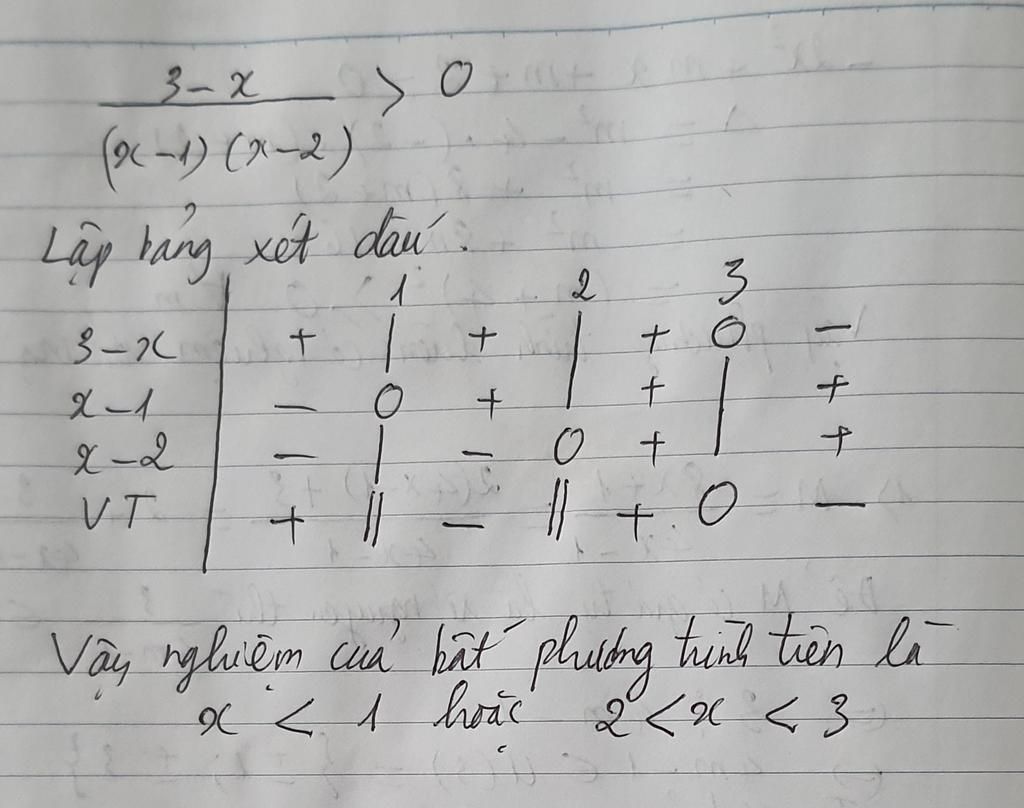 3-x
> 0
(x-1)(x-2)
Lập bảng xét dấu.
1 2 3
3-x + | + | + 0 -
x-1 - 0 + | + | +
x-2 - | - 0 + | +
VT + || - || + 0 -
Vậy nghiệm của bất phương trình trên là
x < 1 hoặc 2 < x < 3